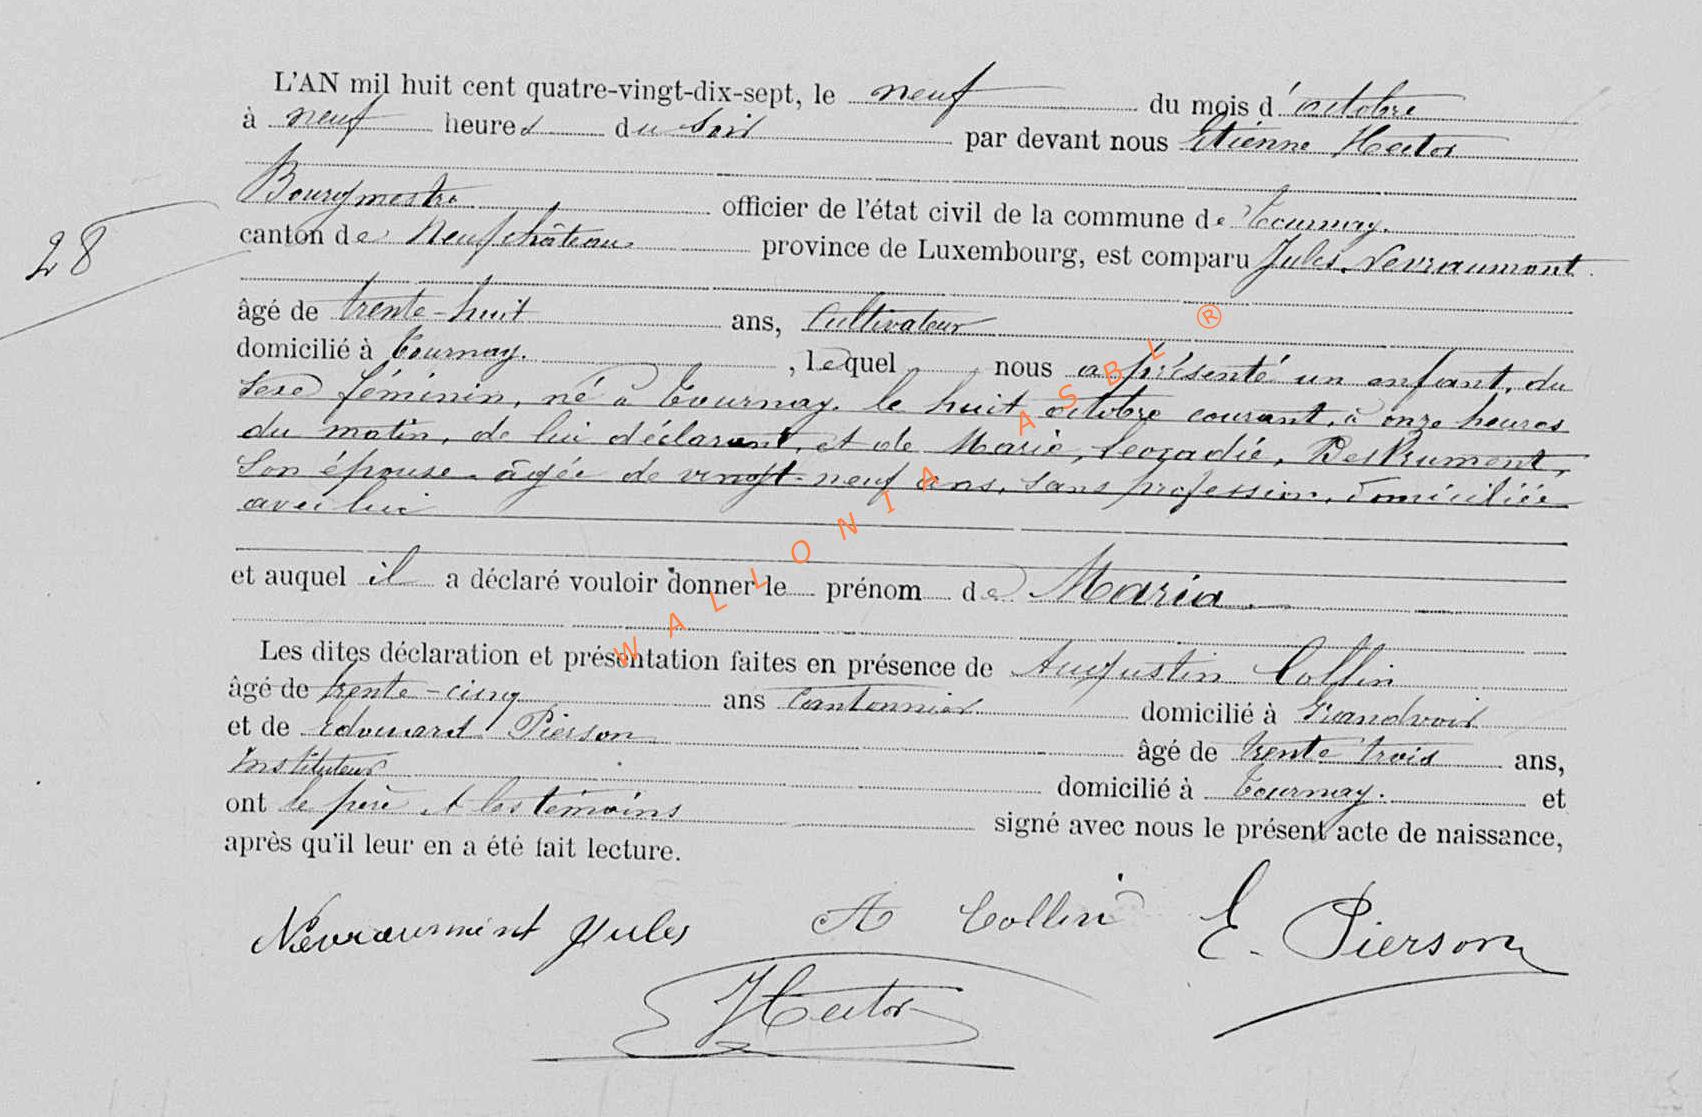 L'AN mil huit cent quatre-vingt-dix-sept, le neuf du mois d'octobre
à neuf heures du soir par devant nous Etienne Hector
Bourgmestre officier de l'état civil de la commune de Tournay.
28
canton de Neufchâteau province de Luxembourg, est comparu Jules Nevraumont
âgé de trente-huit ans, Cultivateur
domicilié à Tournay, lequel nous a présenté un enfant, du
sexe féminin, né à Tournay, le huit octobre courant, à onze heures
du matin, de lui déclarant, et de Marie, Leocadie,
son épouse, âgée de vingt-neuf ans, sans profession, domiciliée
avec lui
et auquel il a déclaré vouloir donner le prénom de Maria
Les dites déclaration et présentation faites en présence de Augustin Collin
âgé de trente-cinq ans Cantonnier domicilié à Grandvoir
et de Edouard Pierson âgé de trente trois ans,
Instituteur domicilié à Tournay. et
ont le père et les témoins signé avec nous le présent acte de naissance,
après qu'il leur en a été fait lecture.
Nevraumont Jules A Collin E. Pierson
Hector
WALLONIA ASBL ®